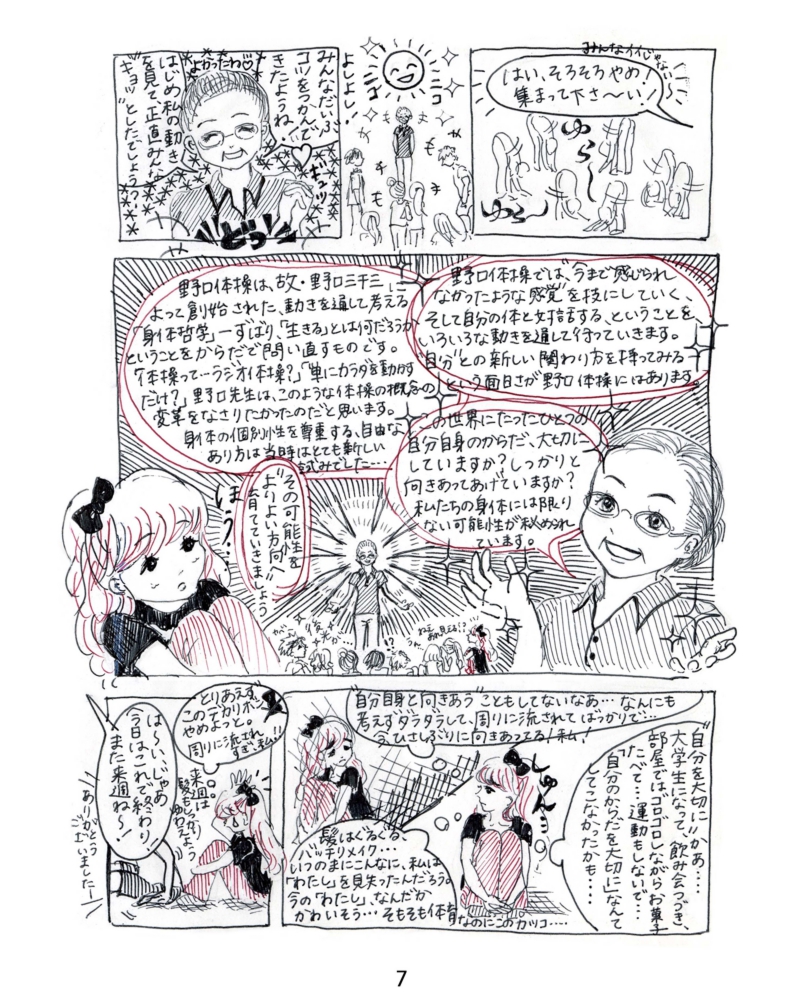 みんなイイじゃない〜
はい、そろそろやめ!
集まって下さ〜い!
ゆら〜
ゆら〜
よしよし!
ニコ
ニコ
も
も
も
も
みんなだいぶ、
コツをつかんで
きたようね!
よかったわ♡
ギュッ
はじめ私の動き
を見て正直みんな
"ギョッ"としたでしょう?
どっ
野口体操では、"今まで感じられ
なかったような感覚"を技にしていく、
そして自分の体と対話する、ということを
いろいろな動きを通して行っていきます。
"自分"との新しい関わり方を持ってみる
という面白さが野口体操にはあります。
野口体操は、故・野口三千三に
よって創始された、動きを通して考える
「身体哲学」―ずばり、「生きる」とは何だろうか
ということをからだで問い直すものです。
「体操って…ラジオ体操?」「単にカラダを動かす
だけ?」野口先生は、このような体操の概念の
変革をなさりたかったのだと思います。
身体の個別性を尊重する、自由な
あり方は当時はとても新しい
試みでした…
この世界にたったひとつの
自分自身のからだ、大切に
していますか?しっかりと
向きあってあげていますか?
私たちの身体には限り
ない可能性が秘められ
ています。
"その可能性を
よりよい方向へ"
育てていきましょう
ほう…
"自分を大切に"かあ…
大学生になって、飲み会つづき、
部屋では、ゴロゴロしながらお菓子
たべて…運動もしないで…
「自分のからだを大切に」なんて
してこなかったかも…
"自分自身と向きあう"こともしてないなあ…なんにも
考えずダラダラして、周りに流されてばっかりで…
今ひさしぶりに向きあってる!私!
しゅん…
髪はぐるぐる、
バッチリメイク…
いつのまにこんなに、私は
「わたし」を見失ったんだろう。
今の「わたし」、なんだか
かわいそう…そもそも体育
なのにこのカッコ…
とりあえず、
このデカリボン
やめよっと。
周りに流され
すぎ、私!!
来週は
髪もしっかり
ゆわえよう
は〜い、じゃあ
今日はこれで終わり!
また来週ね〜!
ありがとう
ございました―
7